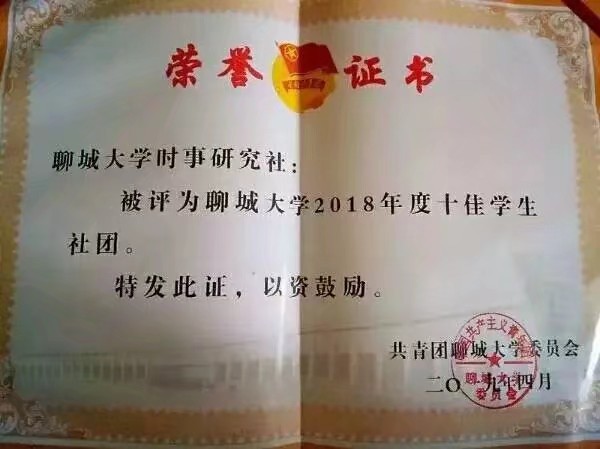 荣誉证书
聊城大学时事研究社：
被评为聊城大学2018年度十佳学生
社团。
特发此证，以资鼓励。
共青团聊城大学委员会
二〇一九年四月
聊城大学
委员会